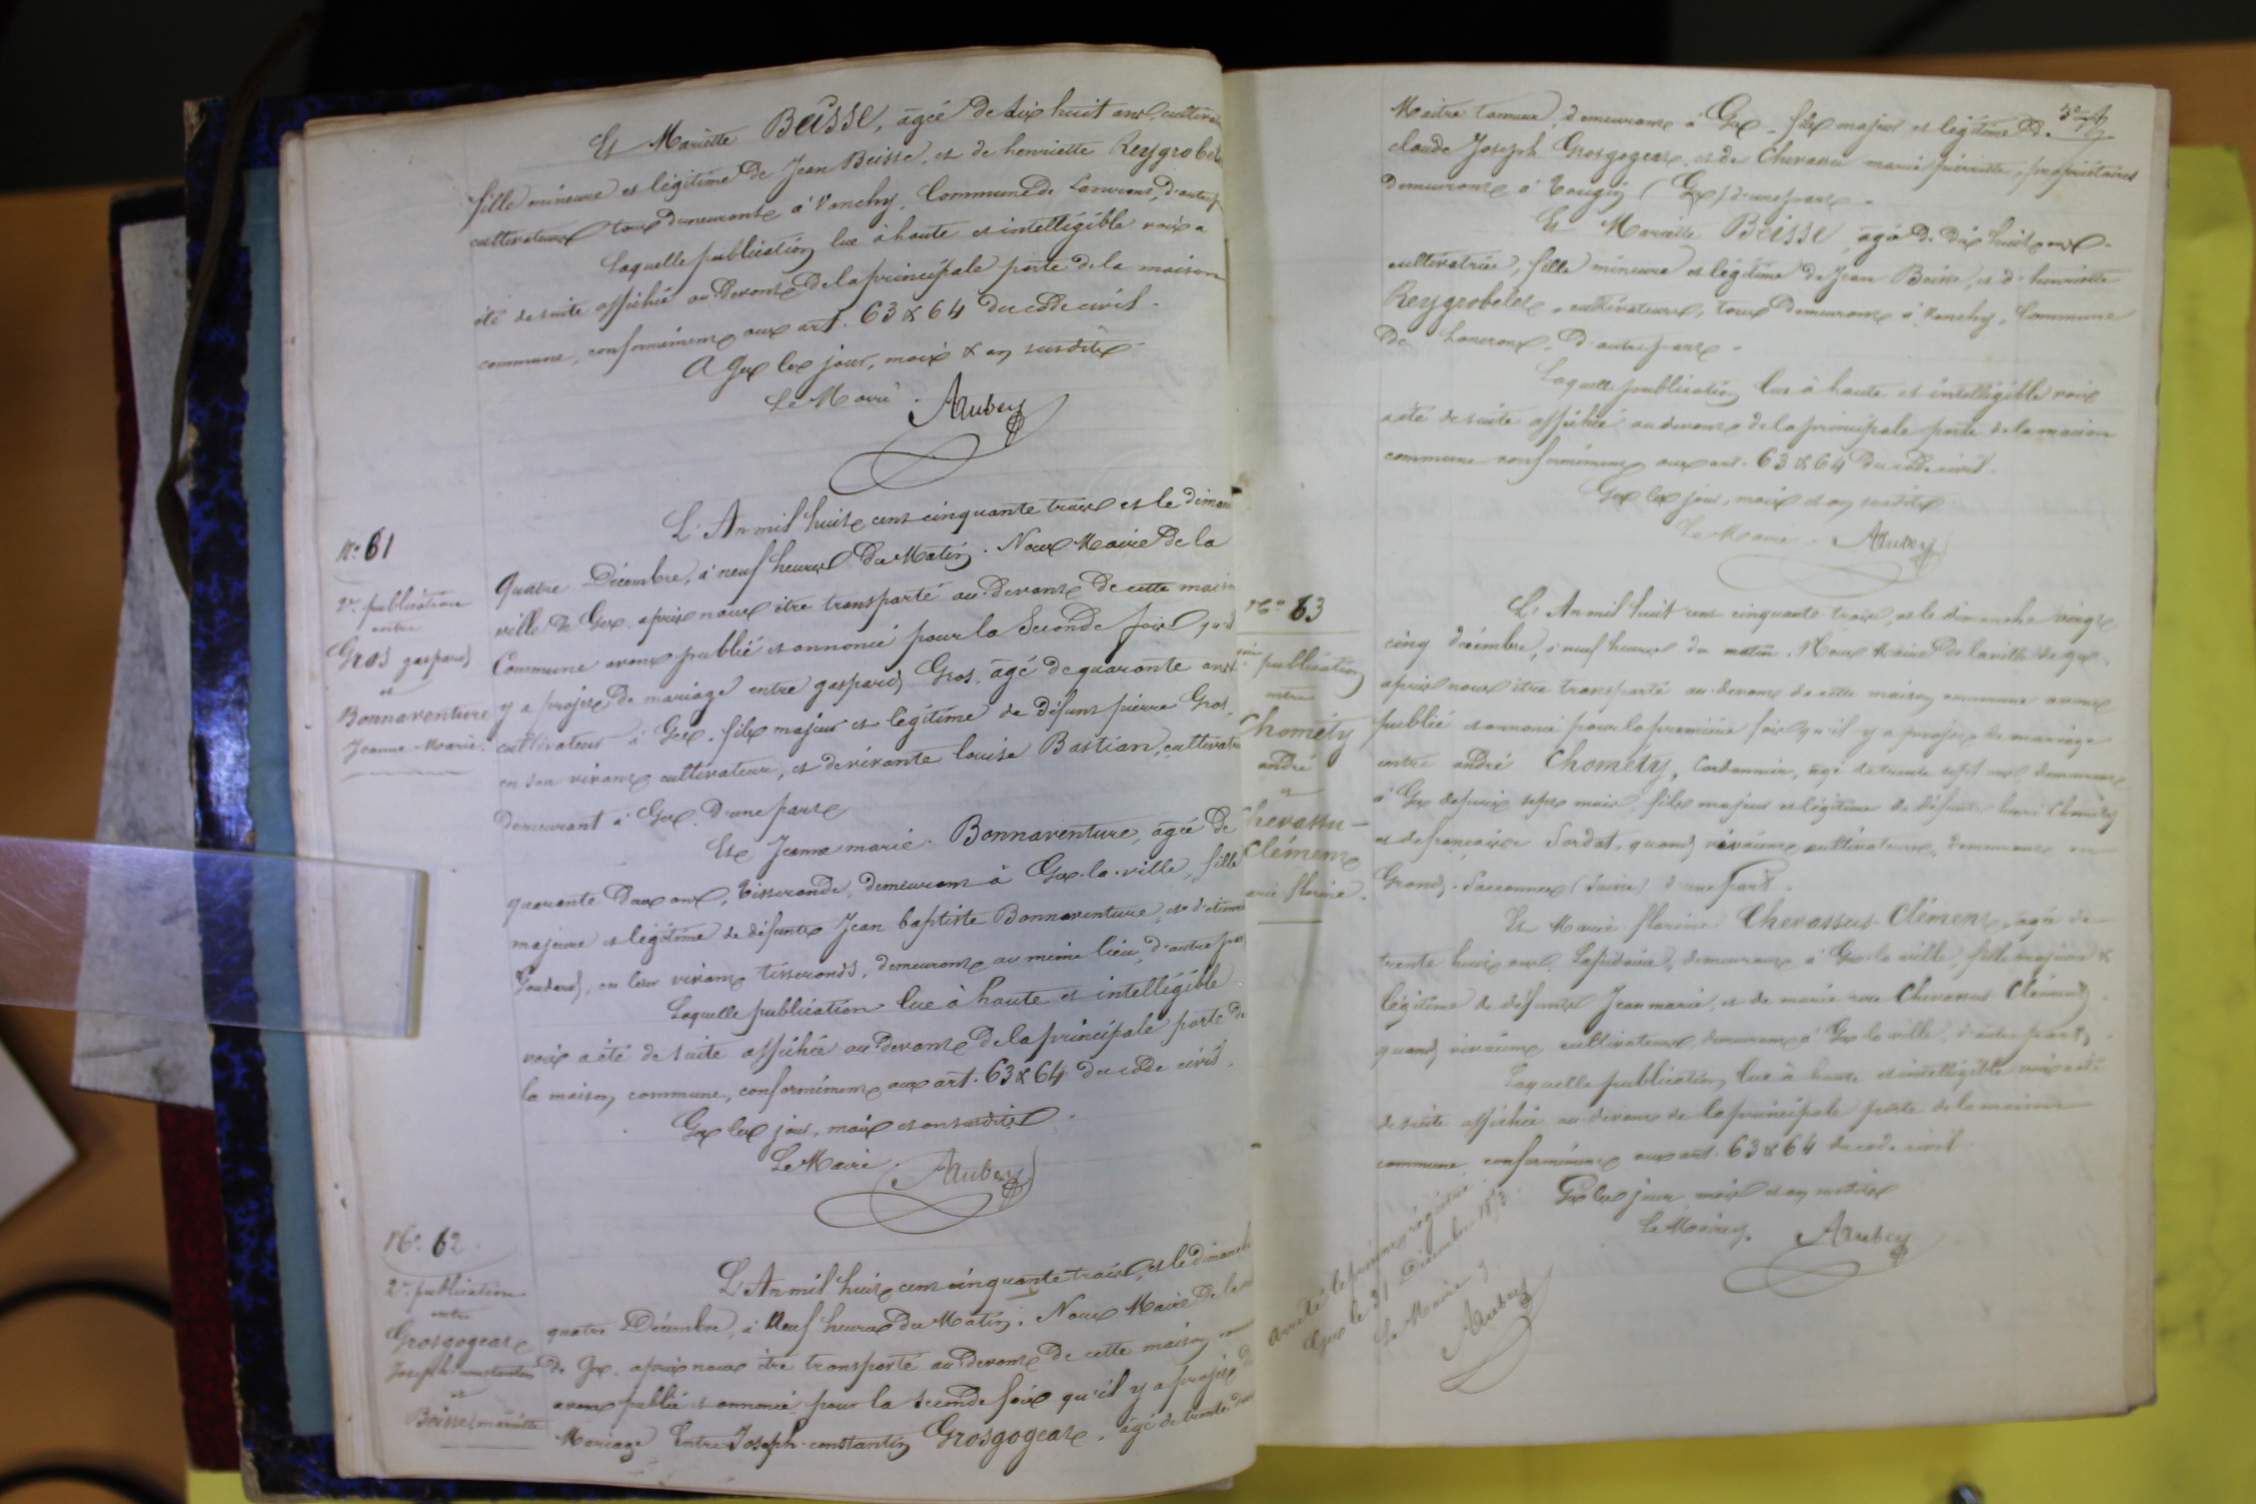 Et Mariette Beisse, agée de dix huit ans, cultiva
fille mineure et légitime de Jean Beisse, et de henriette Reygrobel
cultivateurs tous demeurants à Vanchy, Commune de Lancrans, d'autre p
Laquelle publication lue à haute et intelligible voix a
été de suite affichée au devant de la principale porte de la maison
commune, conformément aux art. 63 & 64 du code civil.
A Gex les jour, mois & an susdits
Le Maire. Aubery
N.o 61
2.e publication
entre
Gros gaspard
et
Bonnaventure
Jeanne-Marie.
L'An mil huit cent cinquante trois et le diman
quatre Décembre, à neuf heures du Matin. Nous Maire de la
ville de Gex, après nous être transporté au devant de cette mais
Commune avons publié et annoncé pour la Seconde fois qu'il
y a projet de mariage entre gaspard Gros, âgé de quarante ans
cultivateur à Gex, fils majeur et légitime de défunt pierre Gros,
en son vivant cultivateur, et de vivante louise Bastian, cultivat
demeurant à Gex, d'une part
Et Jeanne marie Bonnaventure, agée de
quarante deux ans, tisserande, demeurant à Gex-la-ville, fille
majeure et légitime de défunts Jean baptiste Bonnaventure, et d'etienn
Goudard, en leur vivant tisserands, demeurant au même lieu, d'autre par
Laquelle publication lue à haute et intelligible
voix a été de suite affichée au devant de la principale porte de
la maison commune, conformément aux art. 63 & 64 du code civil.
Gex les jour, mois et an susdits.
Le Maire. Aubery
N.o 62.
2.e publication
entre
Grosgogeat
Joseph constantin
et
Beisse mariette
L'An mil huit cent cinquante trois, et le dimanche
quatre Décembre, à Neuf heures du Matin. Nous Maire de la
de Gex, après nous être transporté au devant de cette maison
avons publié et annoncé pour la seconde fois qu'il y a projet de
Mariage Entre Joseph-constantin Grosgogeat, âgé de trente
Maitre tanneur, demeurant à Gex, fils majeur et légitime de
claude Joseph Grosgogeat, et de marie pierrette, propriétaires
demeurant à Tougin (Gex) d'une part.
Et Mariette Beisse agée de dix huit ans
cultivatrice, fille mineure et légitime de Jean Beisse, et d'henriette
Reygrobelet, cultivateurs, tous demeurant à Vanchy, Commune
de Lancrans, d'autre part.
Laquelle publication lue à haute et intelligible voix
a été de suite affichée au devant de la principale porte de la maison
commune conformément aux art. 63 & 64 du code civil.
Gex les jour, mois et an susdits
Le Maire. Aubery
N.o 63
publication
entre
Chométy
andré
et
Chevassu-
Clément
arie florine.
L'An mil huit cent cinquante trois, et le dimanche vingt
cinq décembre, à neuf heures du matin. Nous Maire de la ville de Gex,
après nous être transporté au devant de cette maison commune avons
publié et annoncé pour la première fois qu'il y a projet de mariage
entre andré Chométy, Cordonnier, âgé de trente sept ans demeurant
à Gex depuis sept mois, fils majeur et légitime de défunt Chométy
et de françoise Sordat, quand vivaient cultivateurs, demeurant au
Grand-Saconnex (Suisse) d'une part.
Et Marie florine Chevassus-Clément, agée de
trente huit ans, Lapidaire, demeurant à Gex-la-ville, fille majeure &
légitime de défunts Jean marie, et de marie Chevassus Clément,
quand vivaient cultivateurs demeurant à Gex la ville, d'autre part.
Laquelle publication lue à haute et intelligible voix a été
de suite affichée au devant de la principale porte de la maison
commune, conformément aux art. 63 & 64 du code civil.
Gex les jour, mois et an susdits
Le Maire. Aubery
Arrêté le présent régistre
Gex le 31 Décembre 1853.
Le Maire
Aubery